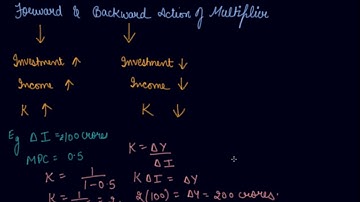 Forward & Backward Action of Multiplier
↓ ↓
Investment ↑ Investment ↓
Income ↑ Income ↓
K ↑ K ↓
Eg ΔI = 100 crores K = ΔY/ΔI
MPC = 0.5
K = 1/(1-0.5) K ΔI = ΔY
K = 1/0.5 = 2 2(100) = ΔY = 200 crores.